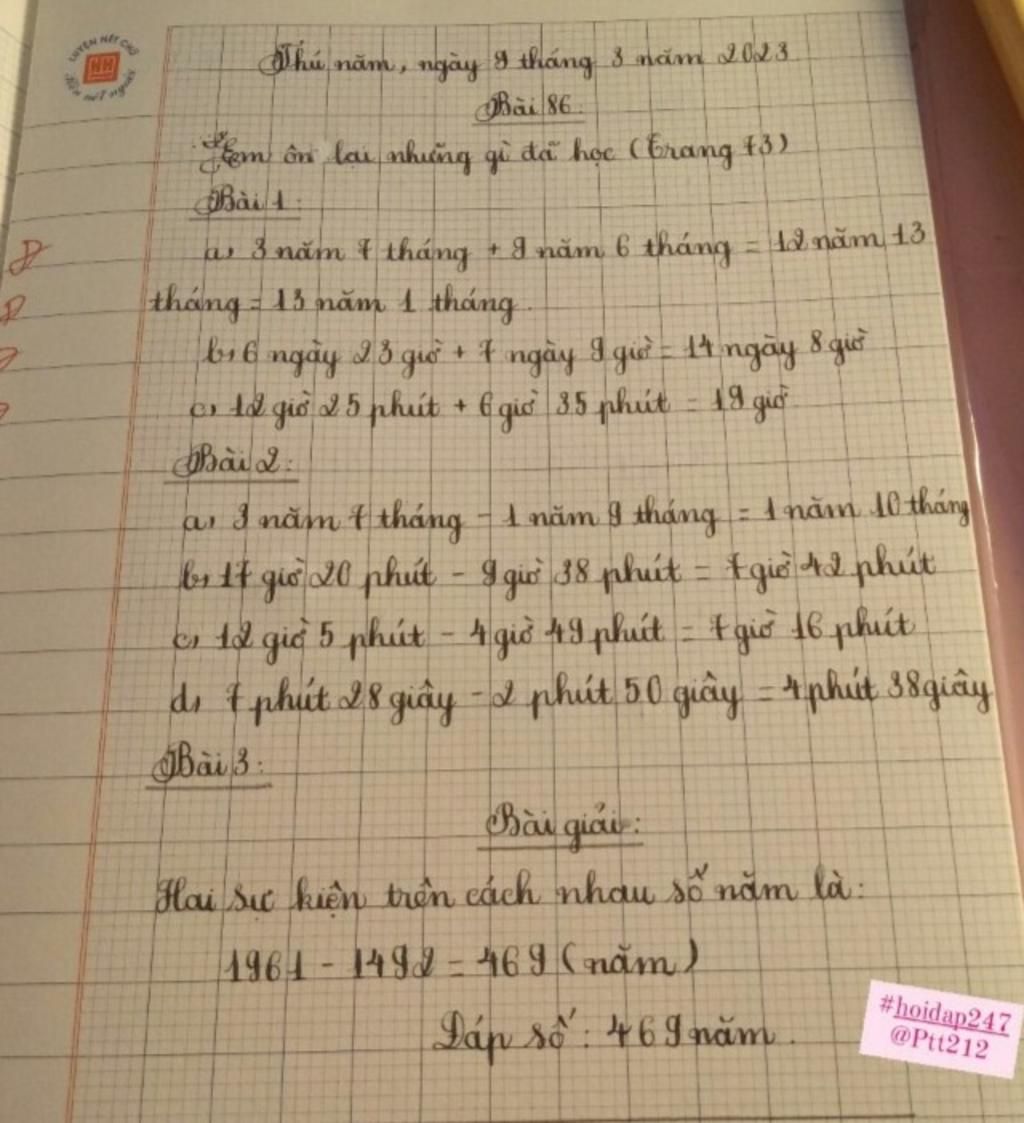 LUYỆN NÉT CHỮ
HH
Rèn nết người
Thứ năm, ngày 9 tháng 3 năm 2023
Bài 86
Em ôn lại những gì đã học (Trang 73)
Bài 1:
a, 3 năm 7 tháng + 9 năm 6 tháng = 12 năm 13
tháng = 13 năm 1 tháng.
b, 6 ngày 23 giờ + 7 ngày 9 giờ = 14 ngày 8 giờ
c, 12 giờ 25 phút + 6 giờ 35 phút = 19 giờ
Bài 2:
a, 3 năm 7 tháng - 1 năm 9 tháng = 1 năm 10 tháng
b, 17 giờ 20 phút - 9 giờ 38 phút = 7 giờ 42 phút
c, 12 giờ 5 phút - 4 giờ 49 phút = 7 giờ 16 phút
d, 7 phút 28 giây - 2 phút 50 giây = 4 phút 38 giây
Bài 3:
Bài giải:
Hai sự kiện trên cách nhau số năm là:
1961 - 1492 = 469 (năm)
Đáp số: 469 năm.
#hoidap247
@Ptt212